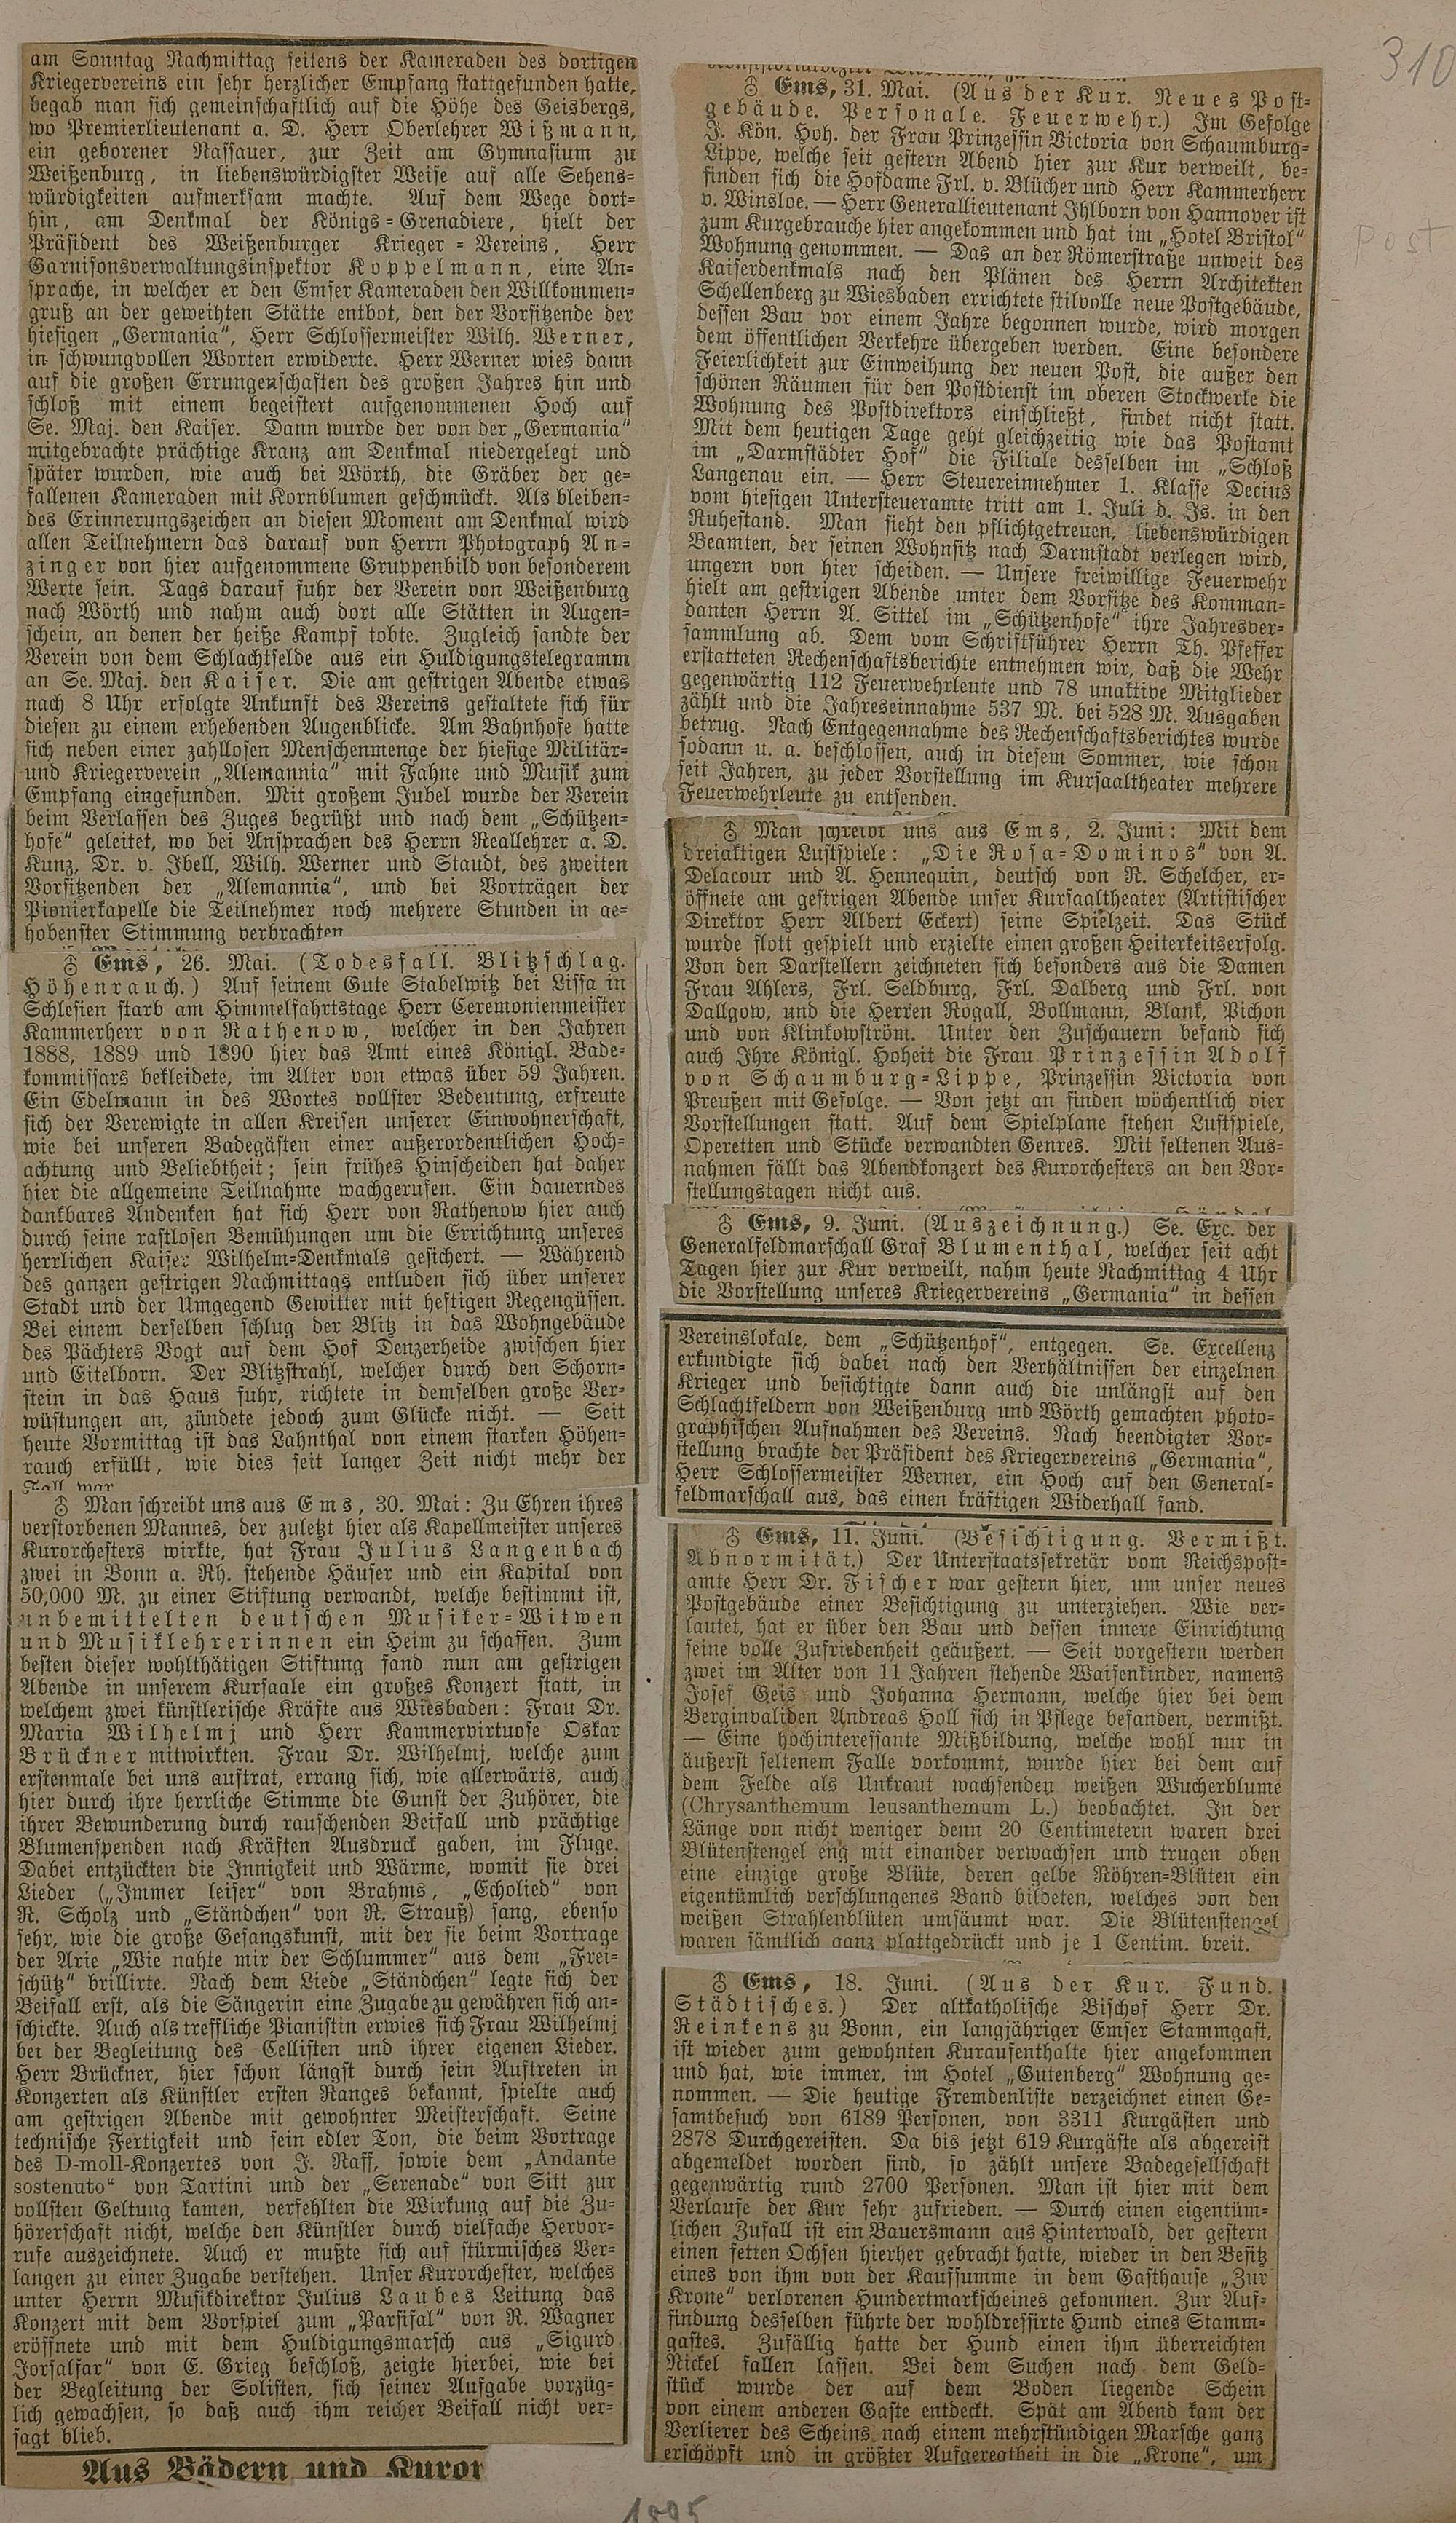 310
post
am Sonntag Nachmittag seitens der Kameraden des dortigen
Kriegervereins ein sehr herzlicher Empfang stattgefunden hatte,
begab man sich gemeinschaftlich auf die Höhe des Geisbergs,
wo Premierlieutenant a. D. Herr Oberlehrer Wißmann,
ein geborener Nassauer, zur Zeit am Gymnasium zu
Weißenburg, in liebenswürdigster Weise auf alle Sehens-
würdigkeiten aufmerksam machte. Auf dem Wege dort-
hin, am Denkmal der Königs-Grenadiere, hielt der
Präsident des Weißenburger Krieger-Vereins, Herr
Garnisonsverwaltungsinspektor Koppelmann, eine An-
sprache, in welcher er den Emser Kameraden den Willkommen-
gruß an der geweihten Stätte entbot, den der Vorsitzende der
hiesigen „Germania“, Herr Schlossermeister Wilh. Werner,
in schwungvollen Worten erwiderte. Herr Werner wies dann
auf die großen Errungenschaften des großen Jahres hin und
schloß mit einem begeistert aufgenommenen Hoch auf
Se. Maj. den Kaiser. Dann wurde der von der „Germania“
mitgebrachte prächtige Kranz am Denkmal niedergelegt und
später wurden, wie auch bei Wörth, die Gräber der ge-
fallenen Kameraden mit Kornblumen geschmückt. Als bleiben-
des Erinnerungszeichen an diesen Moment am Denkmal wird
allen Teilnehmern das darauf von Herrn Photograph An-
zinger von hier aufgenommene Gruppenbild von besonderem
Werte sein. Tags darauf fuhr der Verein von Weißenburg
nach Wörth und nahm auch dort alle Stätten in Augen-
schein, an denen der heiße Kampf tobte. Zugleich sandte der
Verein von dem Schlachtfelde aus ein Huldigungstelegramm
an Se. Maj. den Kaiser. Die am gestrigen Abende etwas
nach 8 Uhr erfolgte Ankunft des Vereins gestaltete sich für
diesen zu einem erhebenden Augenblicke. Am Bahnhofe hatte
sich neben einer zahllosen Menschenmenge der hiesige Militär-
und Kriegerverein „Alemannia“ mit Fahne und Musik zum
Empfang eingefunden. Mit großem Jubel wurde der Verein
beim Verlassen des Zuges begrüßt und nach dem „Schützen-
hofe“ geleitet, wo bei Ansprachen des Herrn Reallehrer a. D.
Kunz, Dr. v. Ibell, Wilh. Werner und Staudt, des zweiten
Vorsitzenden der „Alemannia“, und bei Vorträgen der
Pionierkapelle die Teilnehmer noch mehrere Stunden in ge-
hobenster Stimmung verbrachten
♁ Ems, 26. Mai. (Todesfall. Blitzschlag.
Höhenrauch.) Auf seinem Gute Stabelwitz bei Lissa in
Schlesien starb am Himmelfahrtstage Herr Ceremonienmeister
Kammerherr von Rathenow, welcher in den Jahren
1888, 1889 und 1890 hier das Amt eines Königl. Bade-
kommissars bekleidete, im Alter von etwas über 59 Jahren.
Ein Edelmann in des Wortes vollster Bedeutung, erfreute
sich der Verewigte in allen Kreisen unserer Einwohnerschaft,
wie bei unseren Badegästen einer außerordentlichen Hoch-
achtung und Beliebtheit; sein frühes Hinscheiden hat daher
hier die allgemeine Teilnahme wachgerufen. Ein dauerndes
dankbares Andenken hat sich Herr von Rathenow hier auch
durch seine rastlosen Bemühungen um die Errichtung unseres
herrlichen Kaiser Wilhelm-Denkmals gesichert. — Während
des ganzen gestrigen Nachmittags entluden sich über unserer
Stadt und der Umgegend Gewitter mit heftigen Regengüssen.
Bei einem derselben schlug der Blitz in das Wohngebäude
des Pächters Vogt auf dem Hof Denzerheide zwischen hier
und Eitelborn. Der Blitzstrahl, welcher durch den Schorn-
stein in das Haus fuhr, richtete in demselben große Ver-
wüstungen an, zündete jedoch zum Glücke nicht. — Seit
heute Vormittag ist das Lahnthal von einem starken Höhen-
rauch erfüllt, wie dies seit langer Zeit nicht mehr der
Fall war
♁ Man schreibt uns aus Ems, 30. Mai: Zu Ehren ihres
verstorbenen Mannes, der zuletzt hier als Kapellmeister unseres
Kurorchesters wirkte, hat Frau Julius Langenbach
zwei in Bonn a. Rh. stehende Häuser und ein Kapital von
50,000 M. zu einer Stiftung verwandt, welche bestimmt ist,
unbemittelten deutschen Musiker-Witwen
und Musiklehrerinnen ein Heim zu schaffen. Zum
besten dieser wohlthätigen Stiftung fand nun am gestrigen
Abende in unserem Kursaale ein großes Konzert statt, in
welchem zwei künstlerische Kräfte aus Wiesbaden: Frau Dr.
Maria Wilhelmj und Herr Kammervirtuose Oskar
Brückner mitwirkten. Frau Dr. Wilhelmj, welche zum
erstenmale bei uns auftrat, errang sich, wie allerwärts, auch
hier durch ihre herrliche Stimme die Gunst der Zuhörer, die
ihrer Bewunderung durch rauschenden Beifall und prächtige
Blumenspenden nach Kräften Ausdruck gaben, im Fluge.
Dabei entzückten die Innigkeit und Wärme, womit sie drei
Lieder („Immer leiser“ von Brahms, „Echolied“ von
R. Scholz und „Ständchen“ von R. Strauß) sang, ebenso
sehr, wie die große Gesangskunst, mit der sie beim Vortrage
der Arie „Wie nahte mir der Schlummer“ aus dem „Frei-
schütz“ brillirte. Nach dem Liede „Ständchen“ legte sich der
Beifall erst, als die Sängerin eine Zugabe zu gewähren sich an-
schickte. Auch als treffliche Pianistin erwies sich Frau Wilhelmj
bei der Begleitung des Cellisten und ihrer eigenen Lieder.
Herr Brückner, hier schon längst durch sein Auftreten in
Konzerten als Künstler ersten Ranges bekannt, spielte auch
am gestrigen Abende mit gewohnter Meisterschaft. Seine
technische Fertigkeit und sein edler Ton, die beim Vortrage
des D-moll-Konzertes von J. Raff, sowie dem „Andante
sostenuto“ von Tartini und der „Serenade“ von Sitt zur
vollsten Geltung kamen, verfehlten die Wirkung auf die Zu-
hörerschaft nicht, welche den Künstler durch vielfache Hervor-
rufe auszeichnete. Auch er mußte sich auf stürmisches Ver-
langen zu einer Zugabe verstehen. Unser Kurorchester, welches
unter Herrn Musikdirektor Julius Laubes Leitung das
Konzert mit dem Vorspiel zum „Parsifal“ von R. Wagner
eröffnete und mit dem Huldigungsmarsch aus „Sigurd
Jorsalfar“ von E. Grieg beschloß, zeigte hierbei, wie bei
der Begleitung der Solisten, sich seiner Aufgabe vorzüg-
lich gewachsen, so daß auch ihm reicher Beifall nicht ver-
sagt blieb.
Aus Bädern und Kuror
♁ Ems, 31. Mai. (Aus der Kur. Neues Post-
gebäude. Personale. Feuerwehr.) Im Gefolge
J. Kön. Hoh. der Frau Prinzessin Victoria von Schaumburg-
Lippe, welche seit gestern Abend hier zur Kur verweilt, be-
finden sich die Hofdame Frl. v. Blücher und Herr Kammerherr
v. Winsloe. — Herr Generallieutenant Ihlborn von Hannover ist
zum Kurgebrauche hier angekommen und hat im „Hotel Bristol“
Wohnung genommen. — Das an der Römerstraße unweit des
Kaiserdenkmals nach den Plänen des Herrn Architekten
Schellenberg zu Wiesbaden errichtete stilvolle neue Postgebäude,
dessen Bau vor einem Jahre begonnen wurde, wird morgen
dem öffentlichen Verkehre übergeben werden. Eine besondere
Feierlichkeit zur Einweihung der neuen Post, die außer den
schönen Räumen für den Postdienst im oberen Stockwerke die
Wohnung des Postdirektors einschließt, findet nicht statt.
Mit dem heutigen Tage geht gleichzeitig wie das Postamt
im „Darmstädter Hof“ die Filiale desselben im „Schloß
Langenau ein. — Herr Steuereinnehmer 1. Klasse Decius
vom hiesigen Untersteueramte tritt am 1. Juli d. Js. in den
Ruhestand. Man sieht den pflichtgetreuen, liebenswürdigen
Beamten, der seinen Wohnsitz nach Darmstadt verlegen wird,
ungern von hier scheiden. — Unsere freiwillige Feuerwehr
hielt am gestrigen Abende unter dem Vorsitze des Komman-
danten Herrn A. Sittel im „Schützenhofe“ ihre Jahresver-
sammlung ab. Dem vom Schriftführer Herrn Th. Pfeffer
erstatteten Rechenschaftsberichte entnehmen wir, daß die Wehr
gegenwärtig 112 Feuerwehrleute und 78 unaktive Mitglieder
zählt und die Jahreseinnahme 537 M. bei 528 M. Ausgaben
betrug. Nach Entgegennahme des Rechenschaftsberichtes wurde
sodann u. a. beschlossen, auch in diesem Sommer, wie schon
seit Jahren, zu jeder Vorstellung im Kursaaltheater mehrere
Feuerwehrleute zu entsenden.
♁ Man schreibt uns aus Ems, 2. Juni: Mit dem
dreiaktigen Lustspiele: „Die Rosa-Dominos“ von A.
Delacour und A. Hennequin, deutsch von R. Schelcher, er-
öffnete am gestrigen Abende unser Kursaaltheater (Artistischer
Direktor Herr Albert Eckert) seine Spielzeit. Das Stück
wurde flott gespielt und erzielte einen großen Heiterkeitserfolg.
Von den Darstellern zeichneten sich besonders aus die Damen
Frau Ahlers, Frl. Seldburg, Frl. Dalberg und Frl. von
Dallgow, und die Herren Rogall, Bollmann, Blank, Pichon
und von Klinkowström. Unter den Zuschauern befand sich
auch Ihre Königl. Hoheit die Frau Prinzessin Adolf
von Schaumburg-Lippe, Prinzessin Victoria von
Preußen mit Gefolge. — Von jetzt an finden wöchentlich vier
Vorstellungen statt. Auf dem Spielplane stehen Lustspiele,
Operetten und Stücke verwandten Genres. Mit seltenen Aus-
nahmen fällt das Abendkonzert des Kurorchesters an den Vor-
stellungstagen nicht aus.
♁ Ems, 9. Juni. (Auszeichnung.) Se. Exc. der
Generalfeldmarschall Graf Blumenthal, welcher seit acht
Tagen hier zur Kur verweilt, nahm heute Nachmittag 4 Uhr
die Vorstellung unseres Kriegervereins „Germania“ in dessen
Vereinslokale, dem „Schützenhof“, entgegen. Se. Excellenz
erkundigte sich dabei nach den Verhältnissen der einzelnen
Krieger und besichtigte dann auch die unlängst auf den
Schlachtfeldern von Weißenburg und Wörth gemachten photo-
graphischen Aufnahmen des Vereins. Nach beendigter Vor-
stellung brachte der Präsident des Kriegervereins „Germania“,
Herr Schlossermeister Werner, ein Hoch auf den General-
feldmarschall aus, das einen kräftigen Widerhall fand.
♁ Ems, 11. Juni. (Besichtigung. Vermißt.
Abnormität.) Der Unterstaatssekretär vom Reichspost-
amte Herr Dr. Fischer war gestern hier, um unser neues
Postgebäude einer Besichtigung zu unterziehen. Wie ver-
lautet, hat er über den Bau und dessen innere Einrichtung
seine volle Zufriedenheit geäußert. — Seit vorgestern werden
zwei im Alter von 11 Jahren stehende Waisenkinder, namens
Josef Geis und Johanna Hermann, welche hier bei dem
Berginvaliden Andreas Holl sich in Pflege befanden, vermißt.
— Eine hochinteressante Mißbildung, welche wohl nur in
äußerst seltenem Falle vorkommt, wurde hier bei dem auf
dem Felde als Unkraut wachsenden weißen Wucherblume
(Chrysanthemum leusanthemum L.) beobachtet. In der
Länge von nicht weniger denn 20 Centimetern waren drei
Blütenstengel eng mit einander verwachsen und trugen oben
eine einzige große Blüte, deren gelbe Röhren-Blüten ein
eigentümlich verschlungenes Band bildeten, welches von den
weißen Strahlenblüten umsäumt war. Die Blütenstengel
waren sämtlich ganz plattgedrückt und je 1 Centim. breit.
♁ Ems, 18. Juni. (Aus der Kur. Fund.
Städtisches.) Der altkatholische Bischof Herr Dr.
Reinkens zu Bonn, ein langjähriger Emser Stammgast,
ist wieder zum gewohnten Kuraufenthalte hier angekommen
und hat, wie immer, im Hotel „Gutenberg“ Wohnung ge-
nommen. — Die heutige Fremdenliste verzeichnet einen Ge-
samtbesuch von 6189 Personen, von 3311 Kurgästen und
2878 Durchgereisten. Da bis jetzt 619 Kurgäste als abgereist
abgemeldet worden sind, so zählt unsere Badegesellschaft
gegenwärtig rund 2700 Personen. Man ist hier mit dem
Verlaufe der Kur sehr zufrieden. — Durch einen eigentüm-
lichen Zufall ist ein Bauersmann aus Hinterwald, der gestern
einen fetten Ochsen hierher gebracht hatte, wieder in den Besitz
eines von ihm von der Kaufsumme in dem Gasthause „Zur
Krone“ verlorenen Hundertmarkscheines gekommen. Zur Auf-
findung desselben führte der wohldressirte Hund eines Stamm-
gastes. Zufällig hatte der Hund einen ihm überreichten
Nickel fallen lassen. Bei dem Suchen nach dem Geld-
stück wurde der auf dem Boden liegende Schein
von einem anderen Gaste entdeckt. Spät am Abend kam der
Verlierer des Scheins nach einem mehrstündigen Marsche ganz
erschöpft und in größter Aufgeregtheit in die „Krone“, um
1895